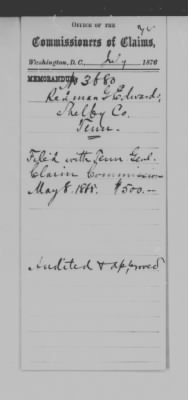 OFFICE OF THE
Commissioners of Claims,
Washington, D.C., July 1876
MEMORANDUM 3680
Redman G. Edwards,
Shelby Co.
Tenn.
Filed with Tenn Genl.
Claim Commission
May 8. 1868. $500.—
Audited & approved